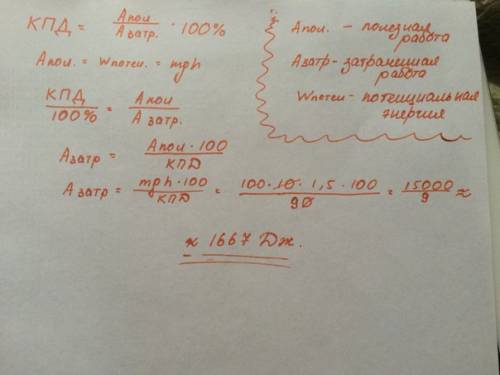 КПД = Aпол / Aзатр. · 100%
Aпол. = Wпотен. = mgh
КПД / 100% = Aпол / Aзатр.
Aзатр = Aпол · 100 / КПД
Aзатр = mgh · 100 / КПД = 100 · 10 · 1,5 · 100 / 90 = 15000 / 9 ≈
≈ 1667 Дж.
Aпол. – полезная
работа
Aзатр – затраченная
работа
Wпотен – потенциальная
энергия